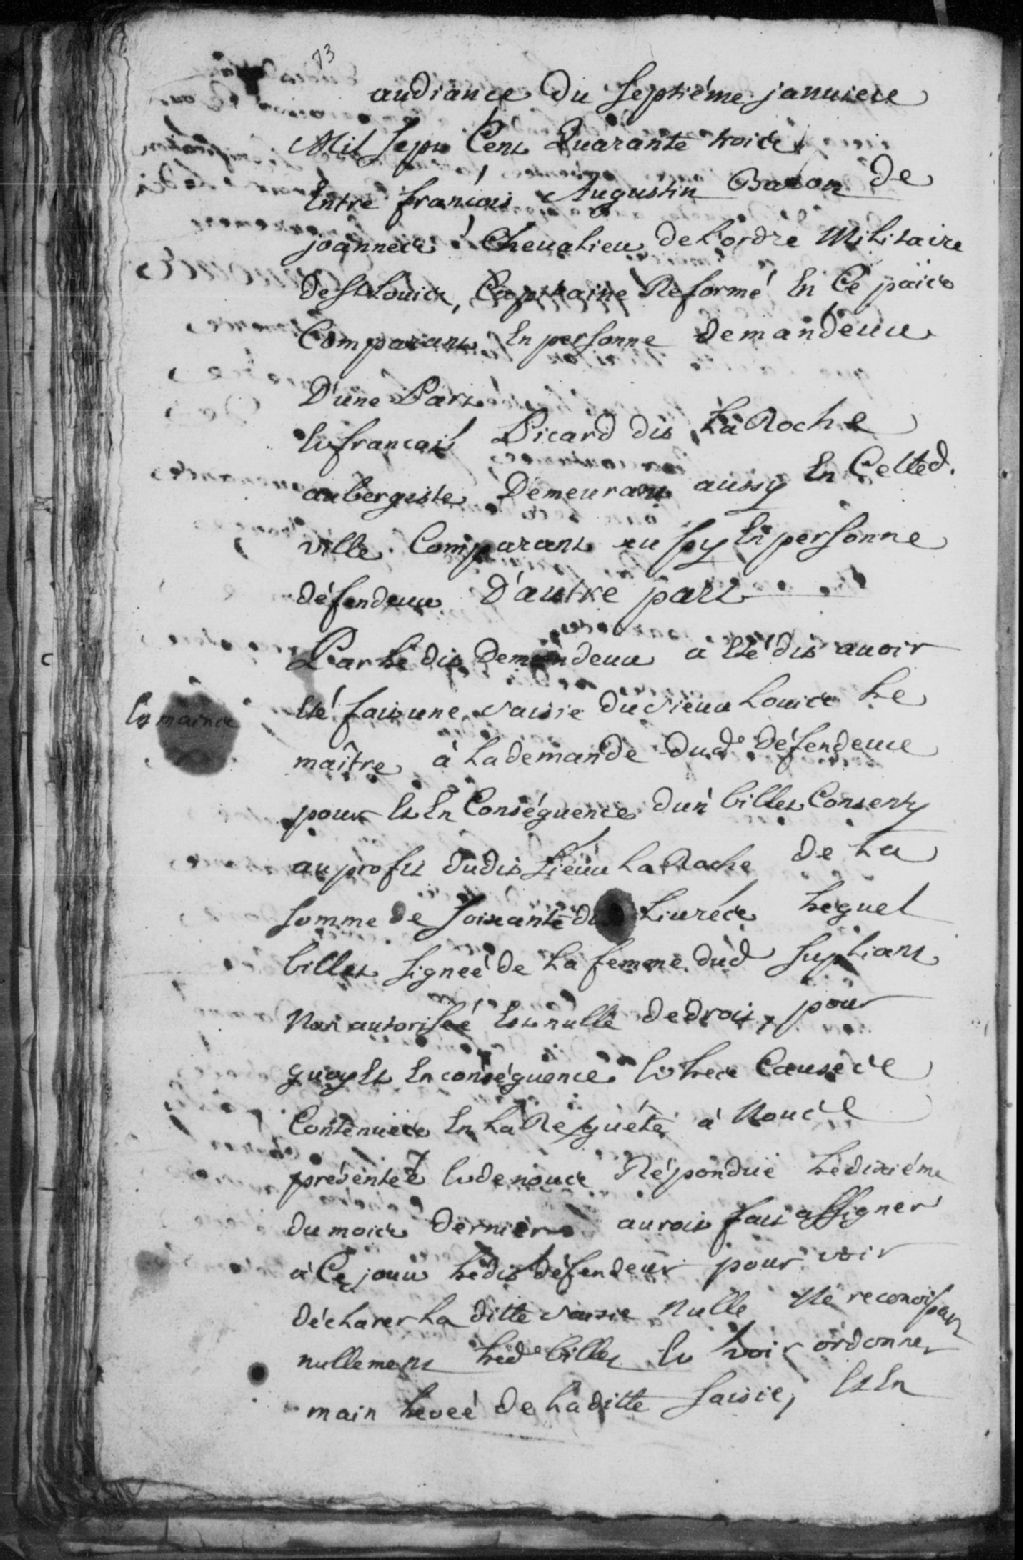 73
audiance du septiéme janviere
Mil sept Cent Quarante trois
Entre françois Augustin Baron de
joannece Chevalieu de L'ordre Militaire
De St Louice, Capitaine Reformé En Ce païce
Comparant En personne demandeuu
D'une Part
Et françois Picard dit La Roche
aubergiste Demeurant aussy En Cette d.
ville Comparant aussy En personne
défendeuu D'autre part
Par Le dit Demandeuu a Eté dit avoir
Eté fait une saisie du sieuu Louice Le
En mainee
maître à La demande dud. Défendeuu
pour Et En Conséquence d'un billet Consenty
au profit dudit sieuu La Roche de La
somme de soixante Livréce Lequel
billet signeé de La femme dud supliant
Non autoriseé Est nulle de droit, pour
quoy Et En conséquence Et Lece Causece
Contenuece En La Requéte à Nouce
présenteé Et de nouce Répondue Le dixiéme
du moice dernier auroit fait assigner
à Ce jouu Ledit défendeur pour voir
déclarer La ditte saisie Nulle Ne reconoissant
nullement Led. billet Et voir ordonner
main Leveé de La ditte saisie, Et En